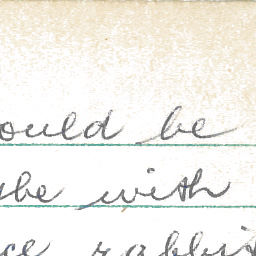 ould be
be with
ce rabbit